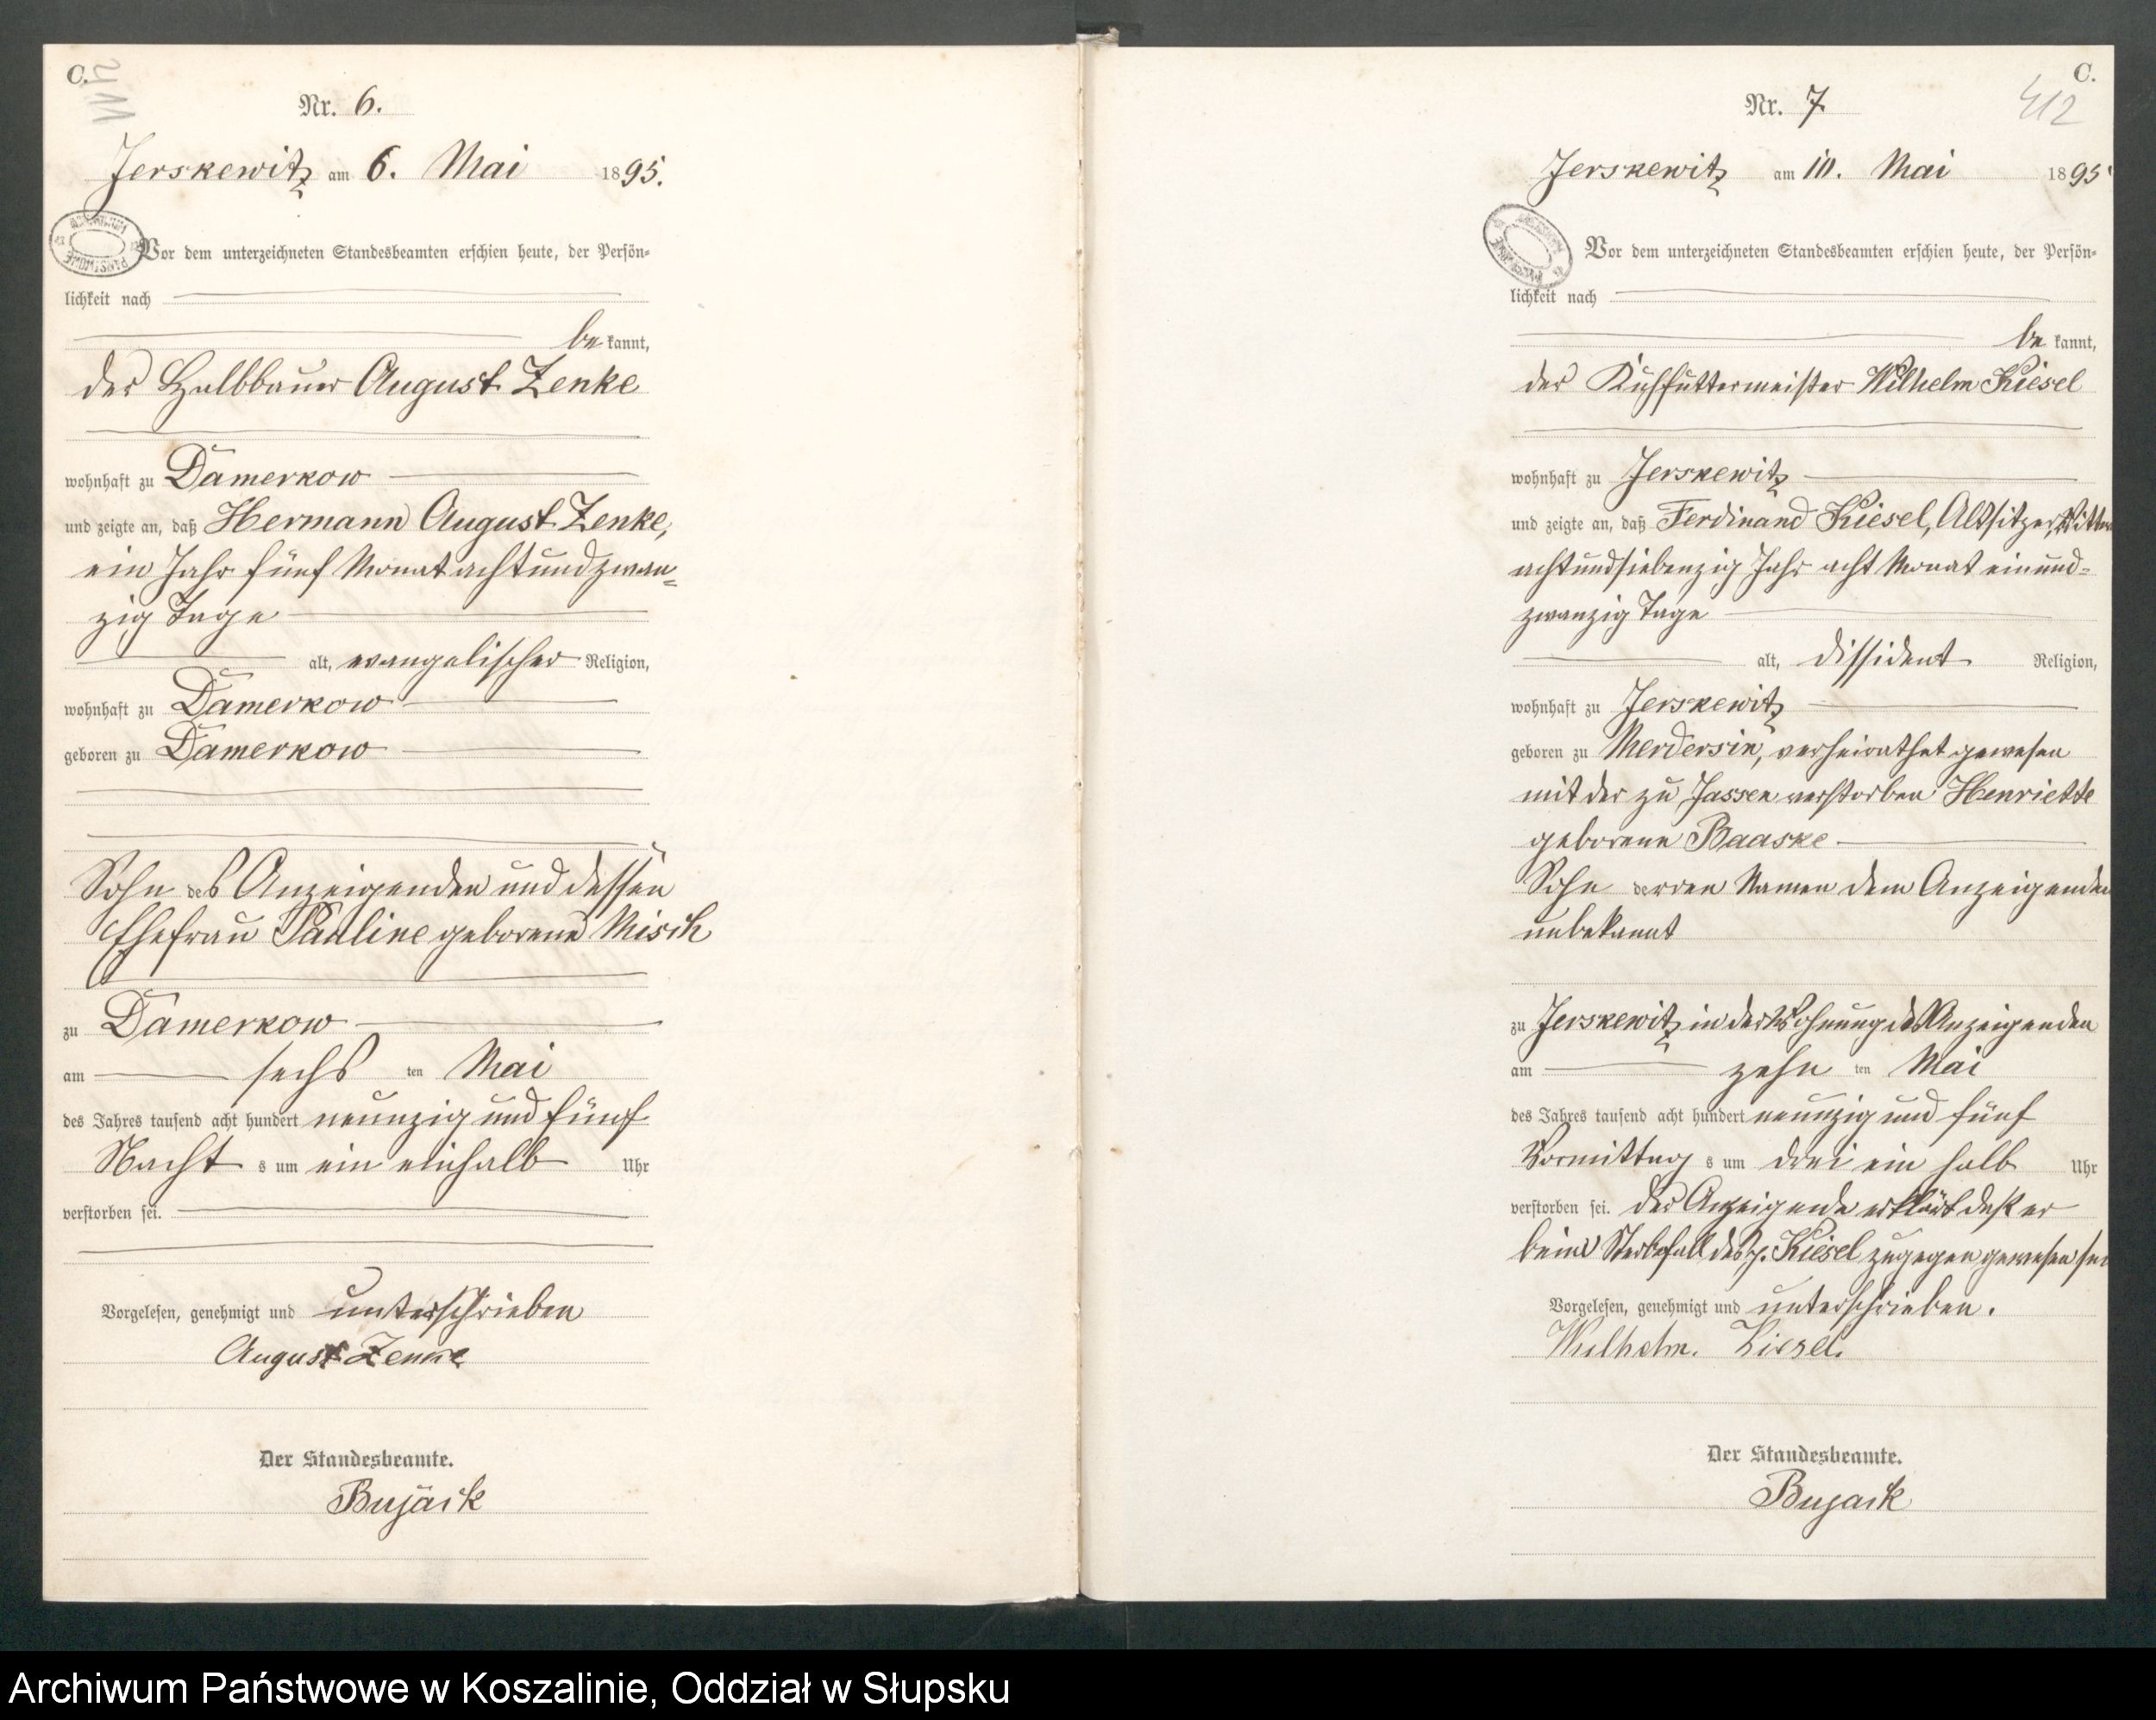 C.
411
Nr. 6.
Jerskewitz am 6. Mai 1895.
Vor dem unterzeichneten Standesbeamten erschien heute, der Persön-
lichkeit nach
be kannt,
der Halbbauer August Zenke
wohnhaft zu Damerkow
und zeigte an, daß Hermann August Zenke,
ein Jahr fünf Monat achtundzwan-
zig Tage
alt, evangelischer Religion,
wohnhaft zu Damerkow
geboren zu Damerkow
Sohn des Anzeigenden und dessen
Ehefrau Pauline geborene Misch
zu Damerkow
am sechs ten Mai
des Jahres tausend acht hundert neunzig und fünf
Nacht s um ein einhalb Uhr
verstorben sei.
Vorgelesen, genehmigt und unterschrieben
August Zenke
Der Standesbeamte.
Bujack
C.
412
Nr. 7
Jerskewitz am 10. Mai 1895
Vor dem unterzeichneten Standesbeamten erschien heute, der Persön-
lichkeit nach
be kannt,
der Kuhfuttermeister Wilhelm Kiesel
wohnhaft zu Jerskewitz
und zeigte an, daß Ferdinand Kiesel, Altsitzer,
achtundsiebenzig Jahr acht Monat einund-
zwanzig Tage
alt, dissident Religion,
wohnhaft zu Jerskewitz
geboren zu Merdersin, verheirathet gewesen
mit der zu Jassen verstorben Henriette
geborene Baaske
Sohn deren Namen dem Anzeigenden
unbekannt
zu Jerskewitz in der Wohnung des Anzeigenden
am zehn ten Mai
des Jahres tausend acht hundert neunzig und fünf
Vormittag s um drei ein halb Uhr
verstorben sei. Der Anzeigende erklärt daß er
beim Sterbefall des p. Kiesel zugegen gewesen sei
Vorgelesen, genehmigt und unterschrieben.
Wilhelm. Kiesel.
Der Standesbeamte.
Bujack
Archiwum Państwowe w Koszalinie, Oddział w Słupsku